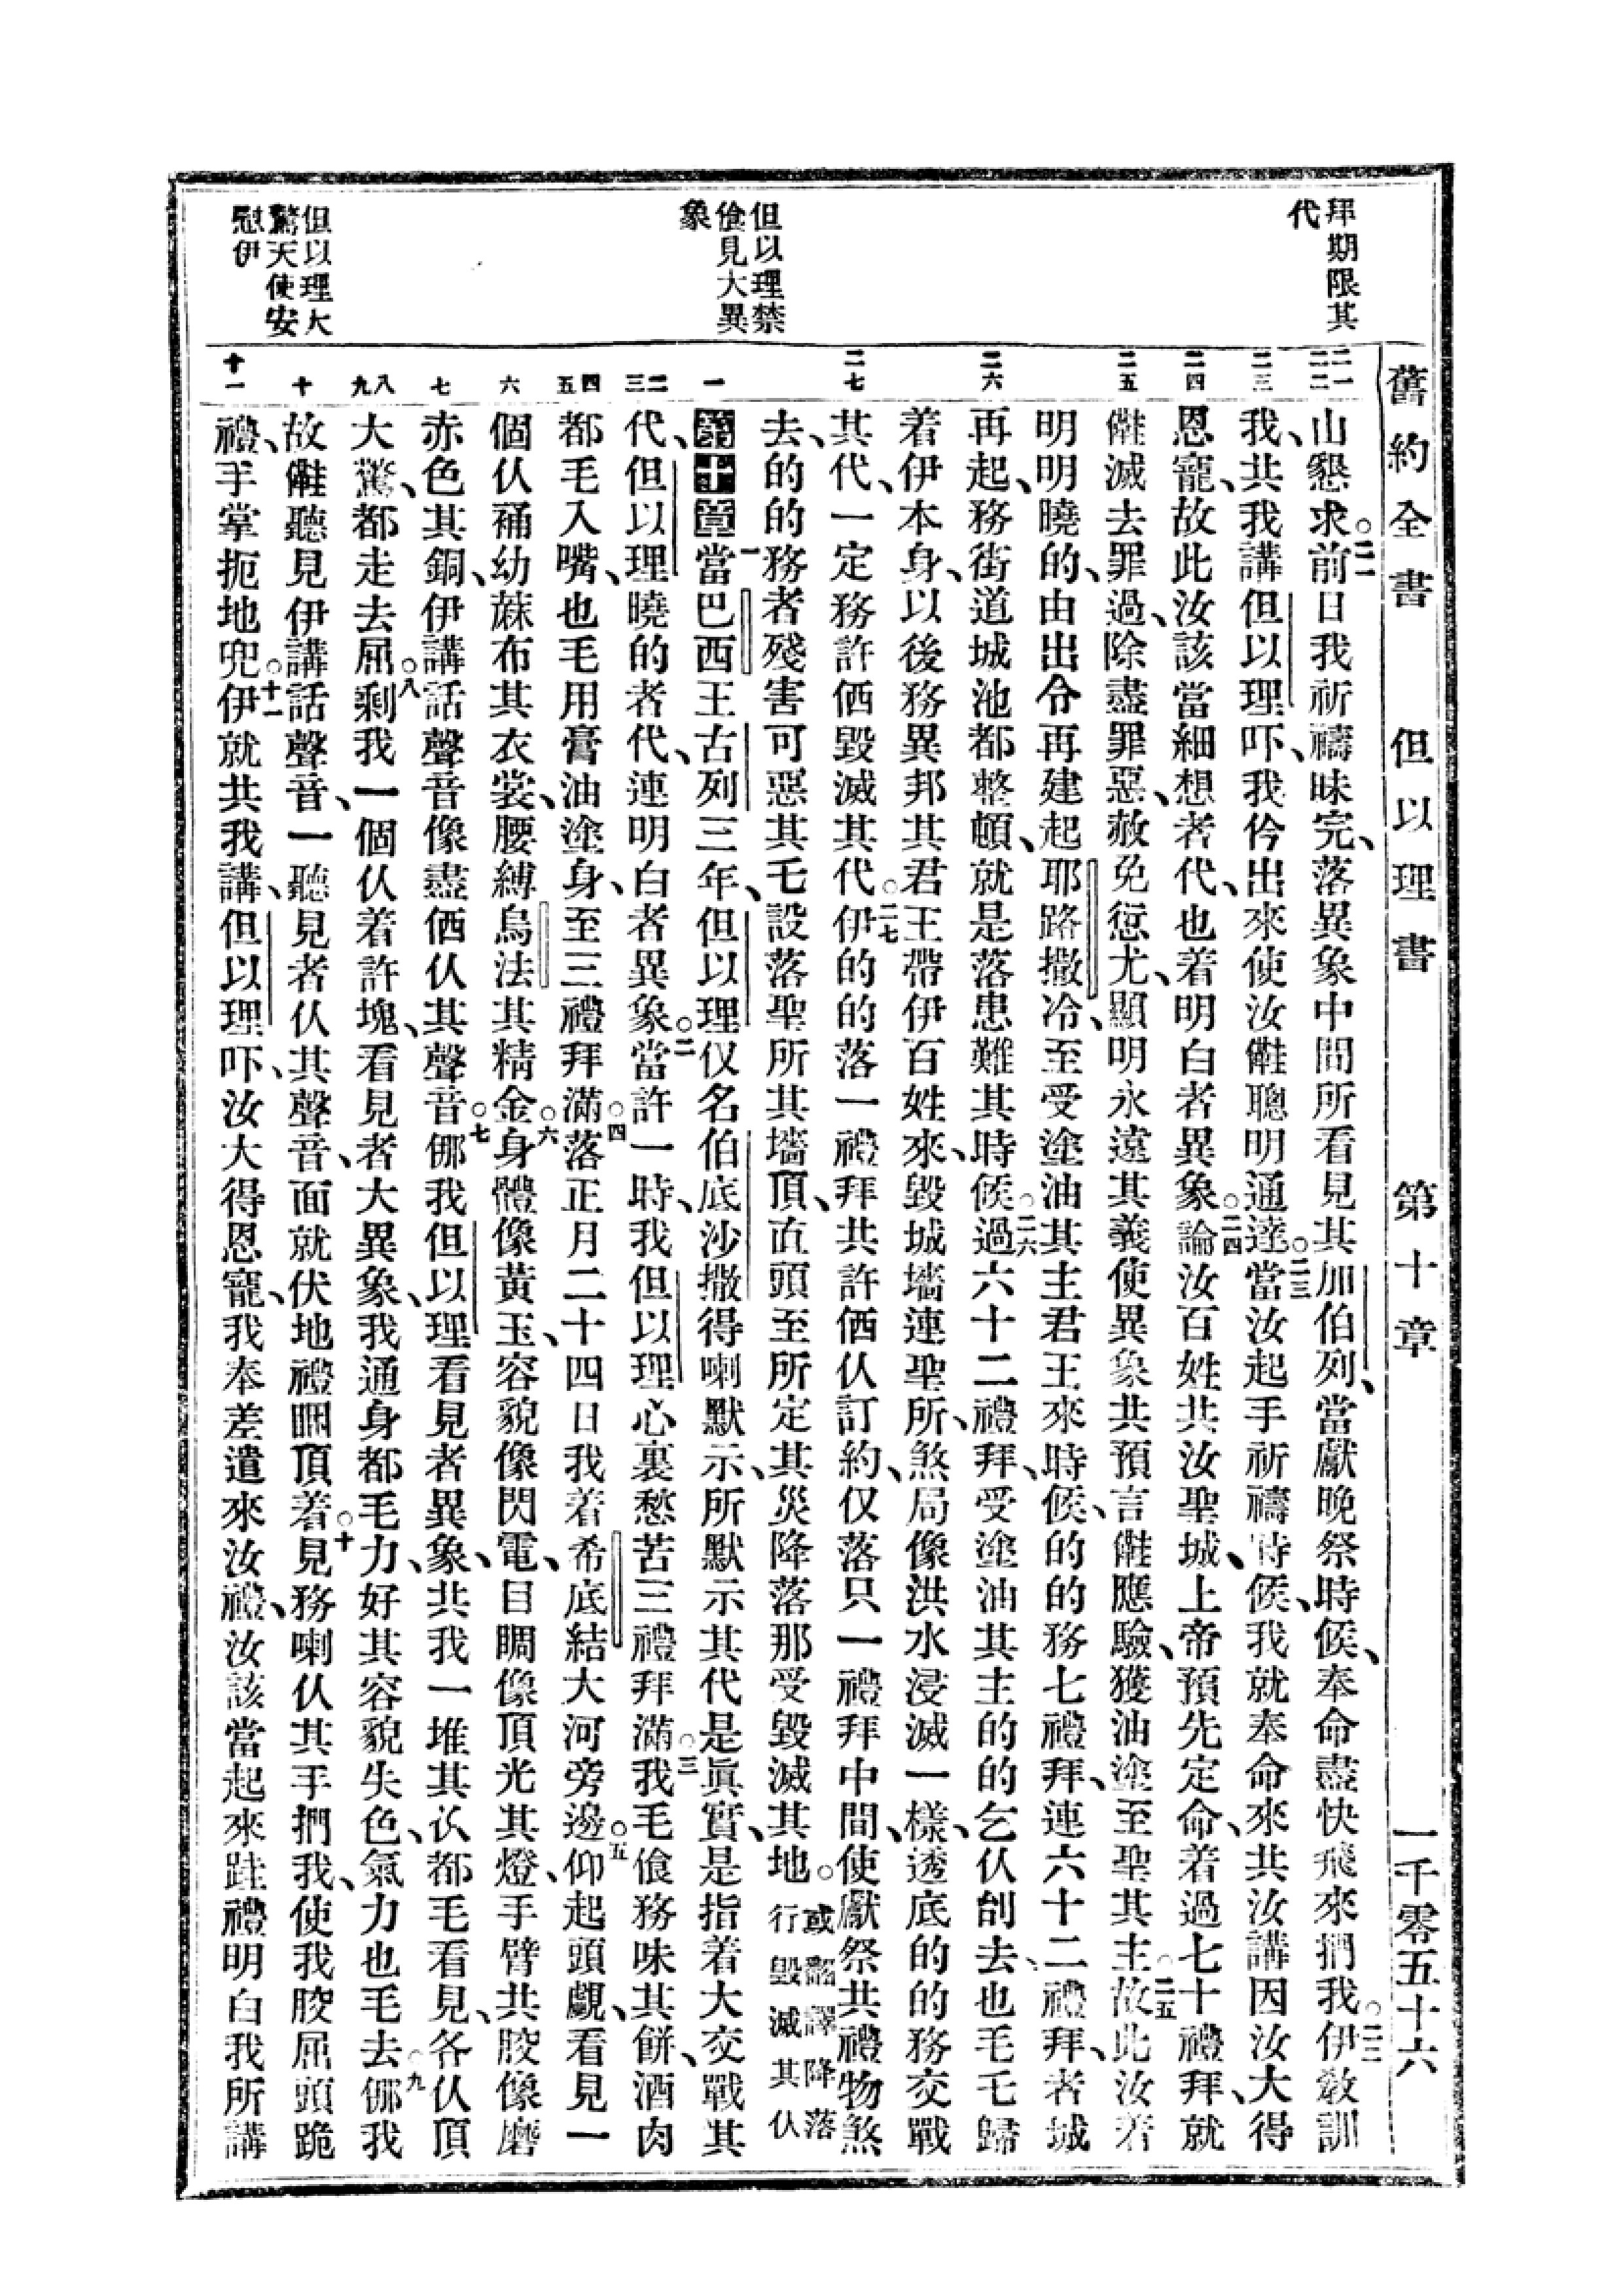 舊約全書 但以理書 第十章 一千零五十六
拜期限其
代
但以理禁
飡見大異
象
但以理大
驚天使安
慰伊
二一
二二
二三
二四
二五
二六
二七
一
二
三
四
五
六
七
八
九
十
十一
山懇求○二一前日我祈禱昧完、落異象中間所看見其加伯列、當獻晚祭時候、奉命盡快飛來捫我○二二伊敎訓
我、共我講但以理吓、我仱出來使汝儺聰明通達○二三當汝起手祈禱時候、我就奉命來共汝講因汝大得
恩寵、故此汝該當細想者代、也着明白者異象○二四論汝百姓共汝聖城、上帝預先定命、着過七十禮拜、就
儺滅去罪過、除盡罪惡、赦免愆尤、顯明永遠其義使異象共預言儺應驗、獲油塗至聖其主○二五故此汝着
明明曉的、由出令再建起耶路撒冷、至受塗油其主君王來時候、的的務七禮拜、連六十二禮拜、者城
再起、務街道城池都整頓、就是落患難其時候○二六過六十二禮拜、受塗油其主的的乞仈刣去、也毛乇歸
着伊本身、以後務異邦其君王帶伊百姓來、毀城墻連聖所、煞局像洪水浸滅一樣、透底的的務交戰
其代、一定務許𠆧毀滅其代○二七伊的的落一禮拜共許𠆧仈訂約、仅落只一禮拜中間、使獻祭共禮物煞
去、的的務者殘害可惡其乇設落聖所其墻頂、直頭至所定其災降落那受毀滅其地○或翻譯降落行毀滅其仈
第十章 一當巴西王古列三年、但以理仅名伯底沙撒得喇默示、所默示其代是眞實、是指着大交戰其
代、但以理曉的者代、連明白者異象○二當許一時、我但以理心裏愁苦三禮拜滿○三我毛飡務味其餅、酒肉
都毛入嘴、也毛用膏油塗身、至三禮拜滿○四落正月二十四日我着希底結大河旁邊○五仰起頭覷、看見一
個仈䘄幼蔴布其衣裳、腰縛烏法其精金○六身體像黃玉、容貌像閃電、目睭像頂光其燈、手臂共骹像磨
赤色其銅、伊講話聲音像盡𠆧仈其聲音○七㑚我但以理看見者異象、共我一堆其仈都毛看見、各仈頂
大驚、都走去屈○八剩我一個仈着許塊、看見者大異象、我通身都毛力、好其容貌失色、氣力也毛去○九㑚我
故儺聽見伊講話聲音、一聽見者仈其聲音、面就伏地禮𥅽頂着○十見務喇仈其手捫我、使我骹屈頭跪
禮、手掌扼地兜○十一伊就共我講、但以理吓、汝大得恩寵、我奉差遣來汝禮、汝該當起來跬禮明白我所講